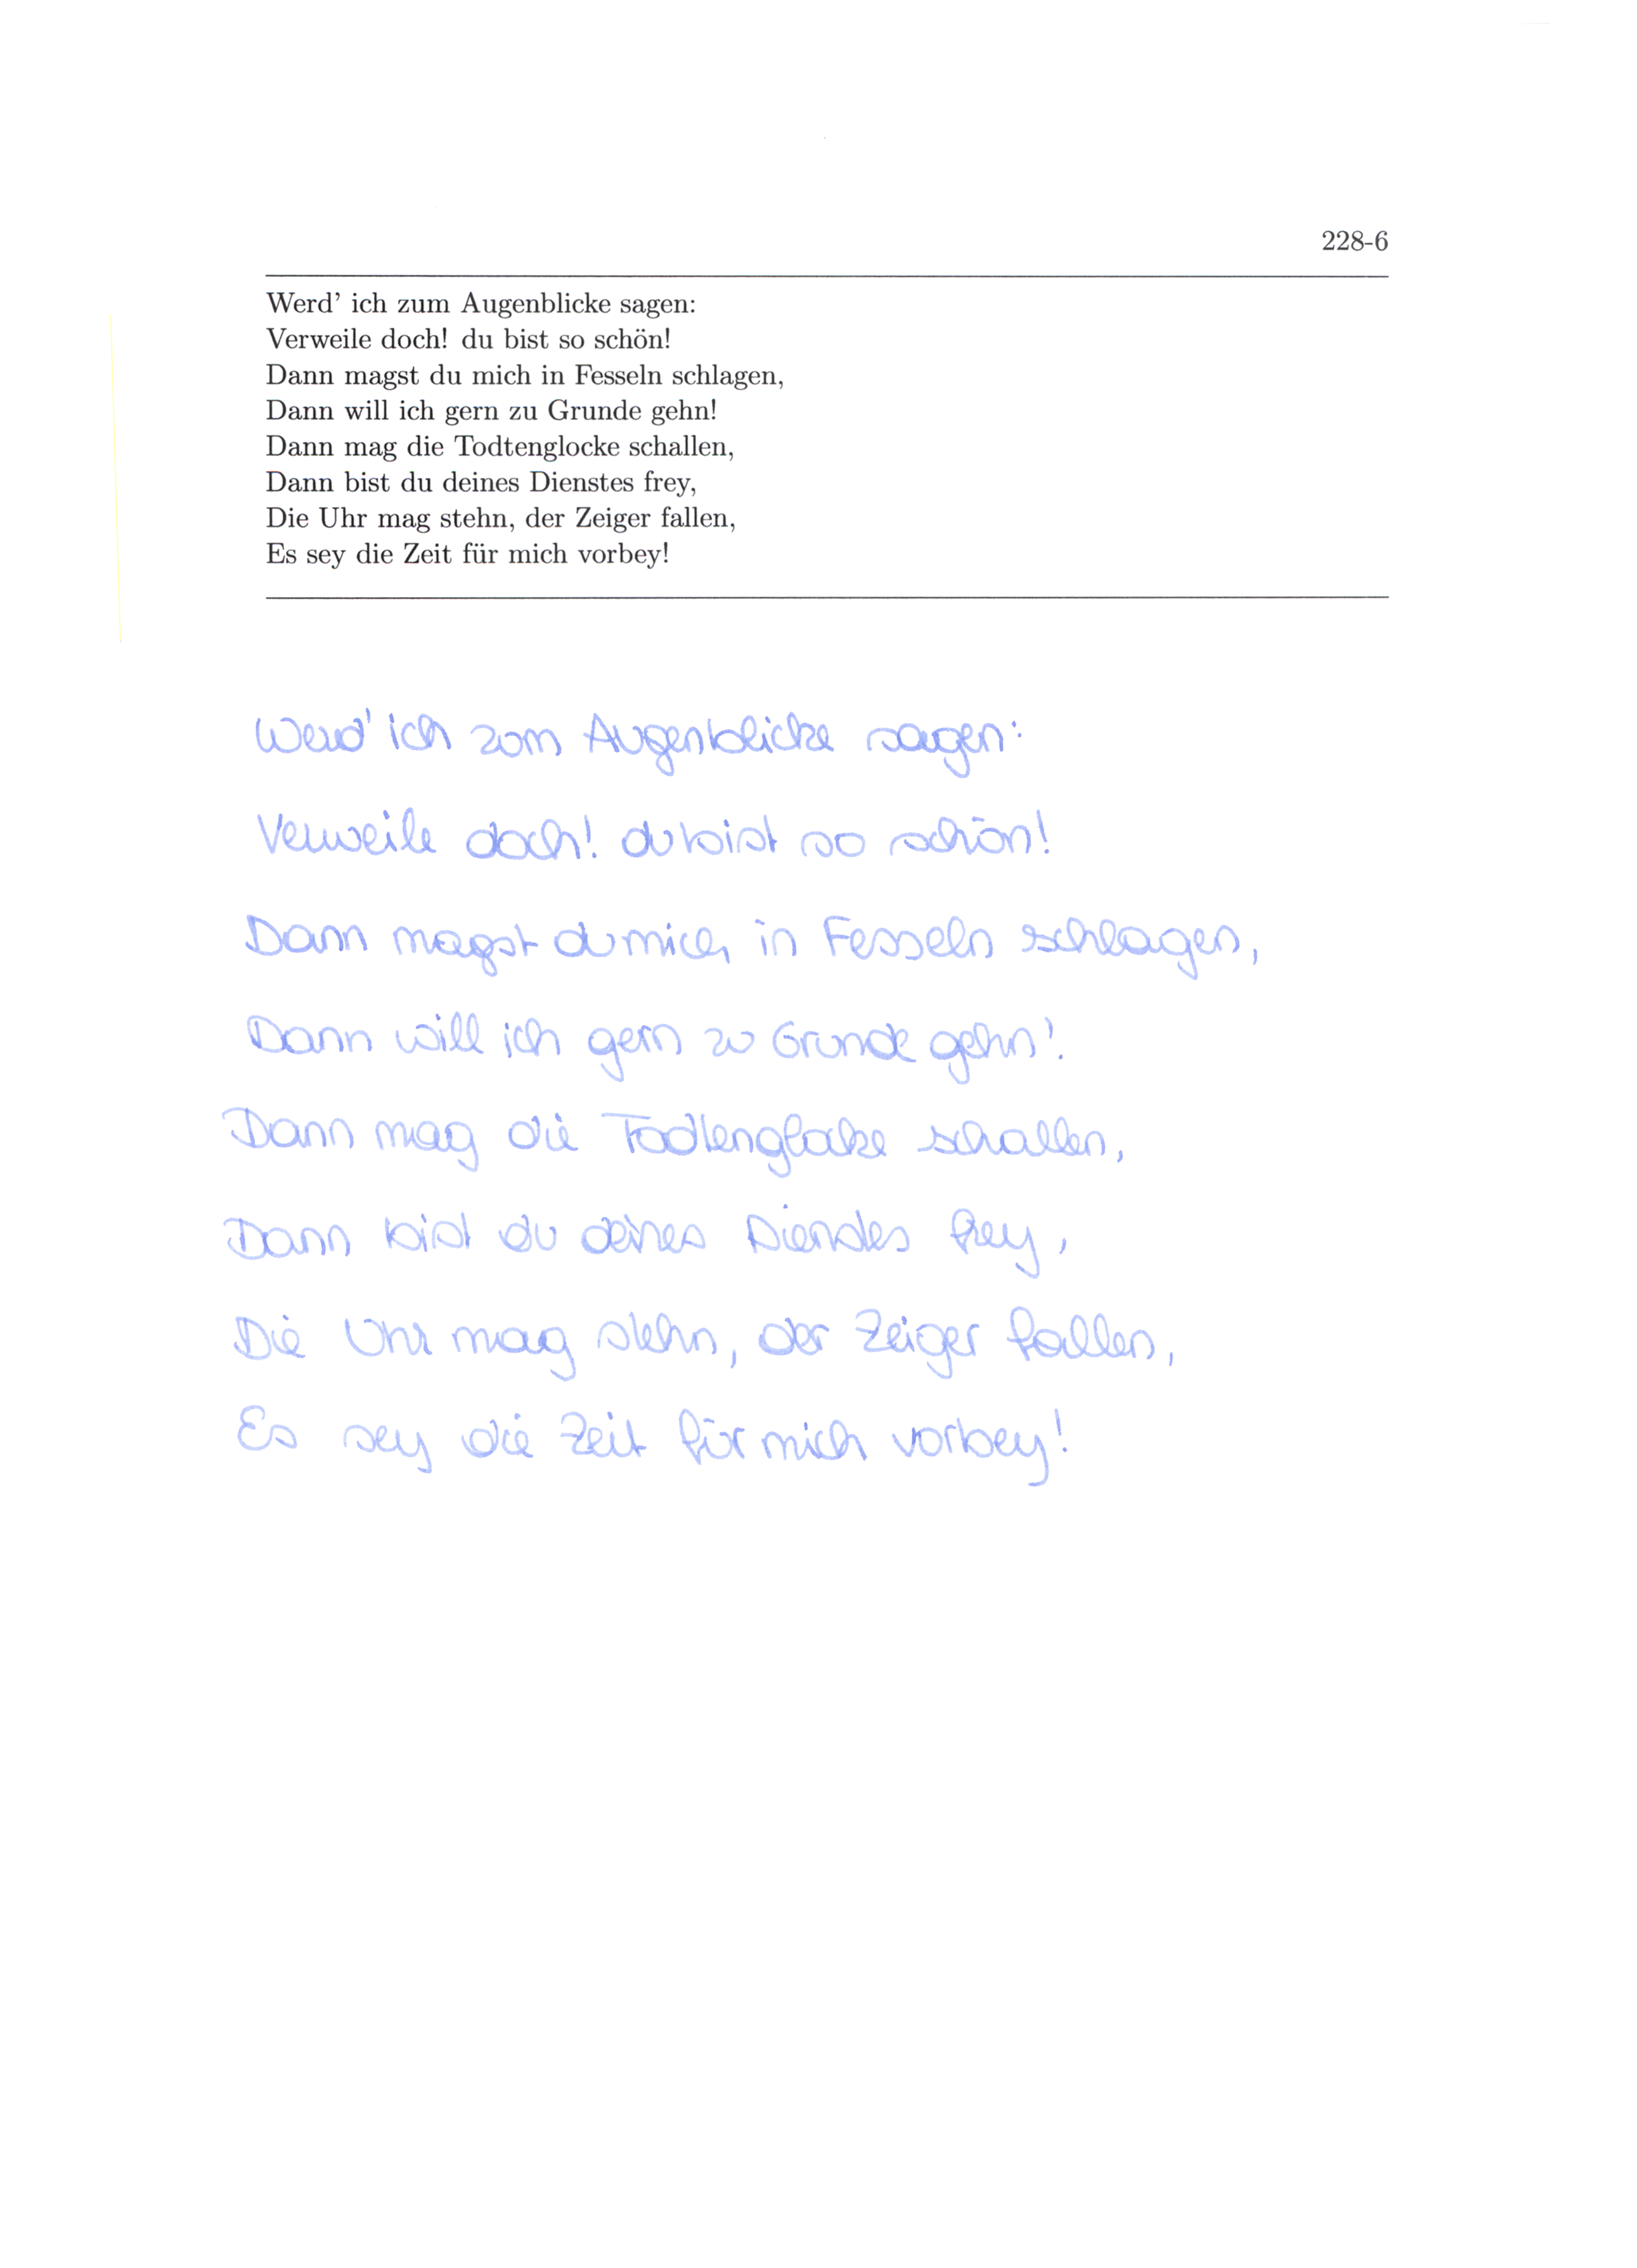 228-6
Werd' ich zum Augenblicke sagen:
Verweile doch! du bist so schön!
Dann magst du mich in Fesseln schlagen,
Dann will ich gern zu Grunde gehn!
Dann mag die Todtenglocke schallen,
Dann bist du deines Dienstes frey,
Die Uhr mag stehn, der Zeiger fallen,
Es sey die Zeit für mich vorbey!
Werd' ich zum Augenblicke sagen:
Verweile doch! du bist so schön!
Dann magst du mich in Fesseln schlagen,
Dann will ich gern zu Grunde gehn!
Dann mag die Todtenglocke schallen,
Dann bist du deines Dienstes frey,
Die Uhr mag stehn, der Zeiger fallen,
Es sey die Zeit für mich vorbey!